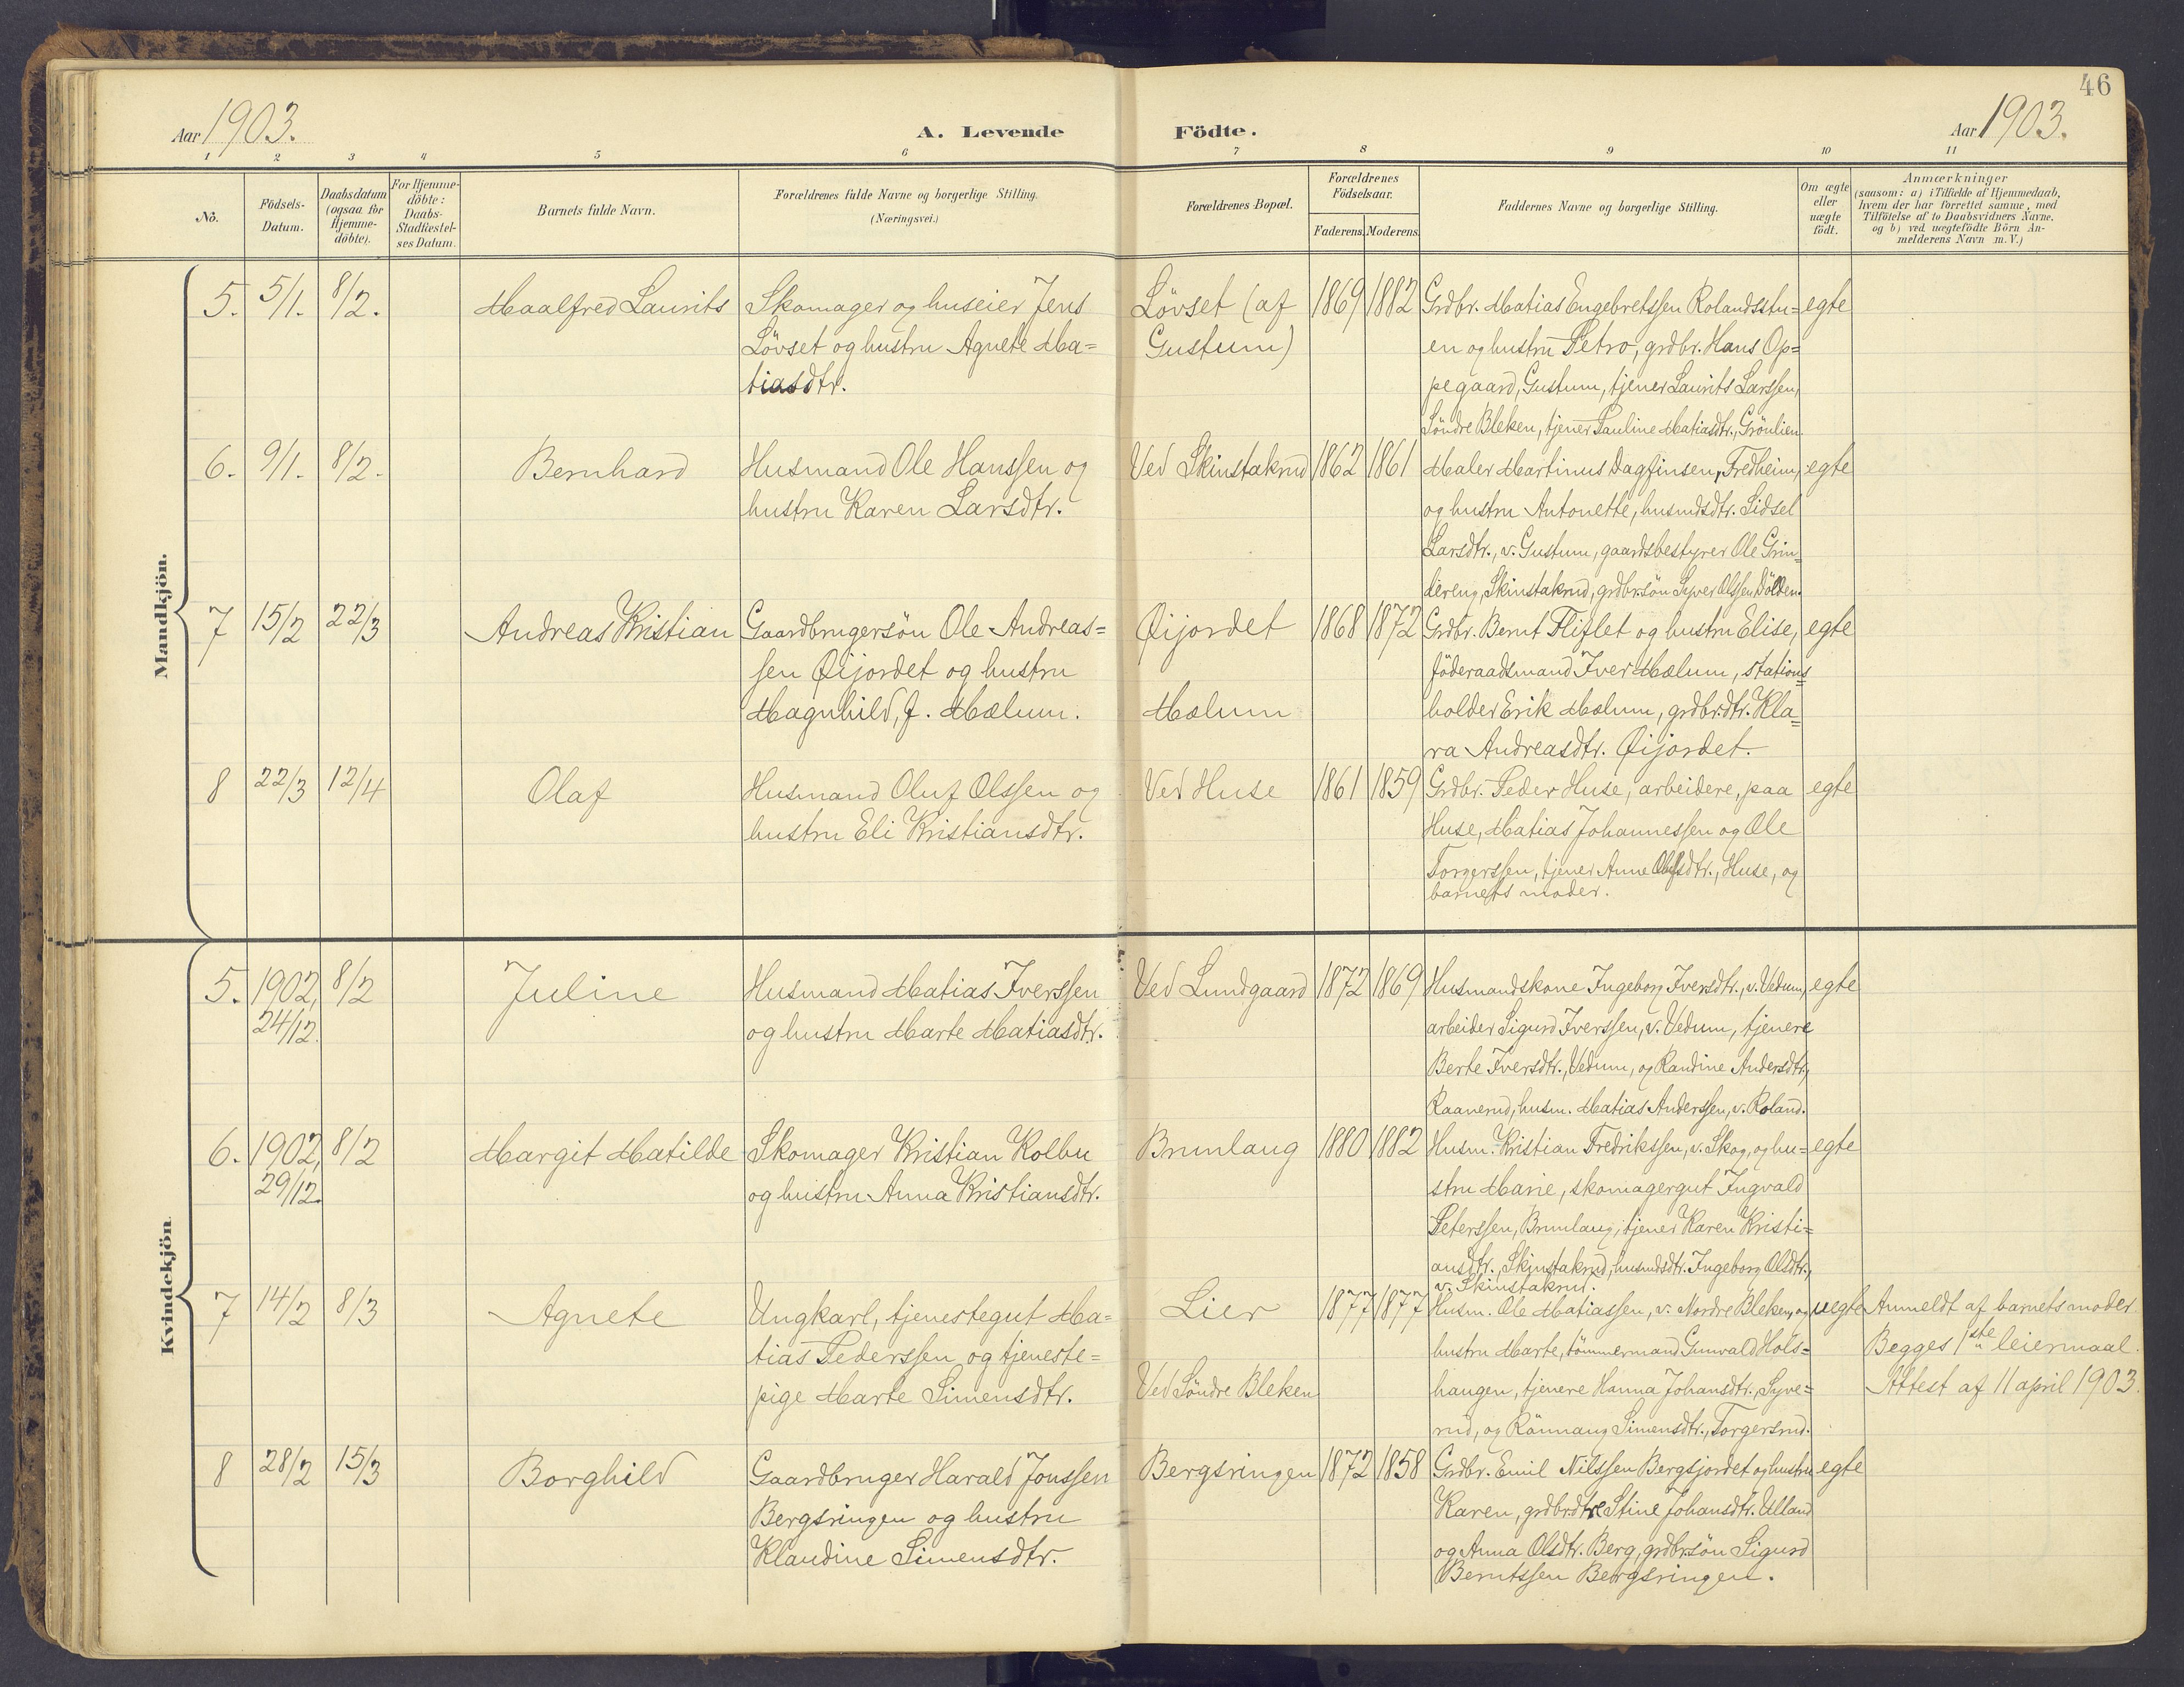 46
Aar 1903.
A. Levende Födte.
Aar 1903.
1 2 3 4 5 6 7 8 9 10 11
No.
Födsels-
Datum.
Daabsdatum
(ogsaa for
Hjemme-
döbte).
For Hjemme-
döbte:
Daabs-
Stadfæstel-
ses Datum.
Barnets fulde Navn.
Forældrenes fulde Navne og borgerlige Stilling.
(Næringsvei.)
Forældrenes Bopæl.
Forældrenes
Födselsaar.
Faderens. Moderens.
Faddernes Navne og borgerlige Stilling.
Om ægte
eller
uægte
födt.
Anmærkninger
(saasom: a) i Tilfælde af Hjemmedaab,
hvem der har forrettet samme, med
Tilföielse af to Daabsvidners Navne.
og b) ved uægtefödte Börn An-
melderens Navn m. V.)
Mandkjön.
5. 5/1. 8/2. Maalfred Laurits
Skomager og huseier Jens
Lövset og hustru Agnete Ma=
tiasdtr.
Lövset (af
Gustum)
1869 1882
Grdbr. Matias Engebretssen Rolandsstu=
en og hustru Petro, grdbr. Hans Op=
pegaard, Gustum, tjener Laurits Larssen,
Söndre Bleken, tjener Pauline Matiasdtr., Grönlien.
egte
6. 9/1. 8/2. Bernhard
Husmand Ole Hanssen og
hustru Karen Larsdtr.
Ved Skinstakrud
1862 1861
Maler Martinus Dagfinsen, Fredheim,
og hustru Antonette, husmdsdtr. Sidsel
Larsdtr., v. Gustum, gaardsbestyrer Ole Grin=
dereng, Skinstakrud, grdbr.sön Syver Olssen Dölden.
egte
7 15/2 22/3 Andreas Kristian
Gaardbrugersön Ole Andreas=
sen Øijordet og hustru
Magnhild, f. Mælum.
Øijordet
Mælum
1868 1872
Grdbr. Bernt Fliflet og hustru Elise,
föderaadsmand Iver Mælum, stations=
holder Erik Mælum, grdbr.dtr. Kla=
ra Andreasdtr. Øijordet.
egte
8 22/3 12/4 Olaf
Husmand Oluf Olssen og
hustru Eli Kristiansdtr.
Ved Huse
1861 1859
Grdbr. Peder Huse, arbeidere, paa
Huse, Matias Johannessen og Ole
Torgerssen, tjener Anne Olufsdtr., Huse, og
barnets moder.
egte
Kvindekjön
5. 1902, 24/12. 8/2 Juline
Husmand Matias Iverssen
og hustru Marte Matiasdtr.
Ved Lundgaard
1872 1869
Husmandskone Ingeborg Iversdtr., v. Vedum,
arbeider Sigurd Iverssen, v. Vedum, tjenere
Berte Iversdtr., Vedum, og Randine Andersdtr.,
Raanerud, husm. Matias Anderssen, v. Roland.
egte
6. 1902, 29/12. 8/2 Margit Matilde
Skomager Kristian Kolbu
og hustru Anna Kristiansdtr.
Brunlaug
1880 1882
Husm. Kristian Fredrikssen, v. Skog, og hu=
stru Marie, skomagergut Ingvald
Peterssen, Brunlaug, tjener Karen Kristi=
ansdtr., Skinstakrud, husmdsdtr. Ingeborg Olsdtr.,
v. Skinstakrud.
egte
7 14/2 8/3 Agnete
Ungkarl, tjenestegut Ma=
tias Pederssen og tjeneste=
pige Marte Simensdtr.
Lier
Ved Söndre Bleken
1877 1877
Husm. Ole Matiassen, v. Nordre Bleken, og
hustru Marte, tömmermand Gunvald Hols=
haugen, tjenere Hanna Johansdtr. Syve=
rud, og Rönnaug Simensdtr., Torgersrud.
uegte
Anmeldt af barnets moder
Begges 1ste leiermaal.
Attest af 11 april 1903.
8 28/2 15/3 Borghild
Gaardbruger Harald Jonssen
Bergsringen og hustru
Klaudine Simensdtr.
Bergsringen
1872 1858
Grdbr. Emil Nilssen Bergsjordet og hustru
Karen, grdbr.dtre Stine Johansdtr. Ulland
og Anna Olsdtr. Berg, grdbr.sön Sigurd
Berntssen Bergsringen.
egte